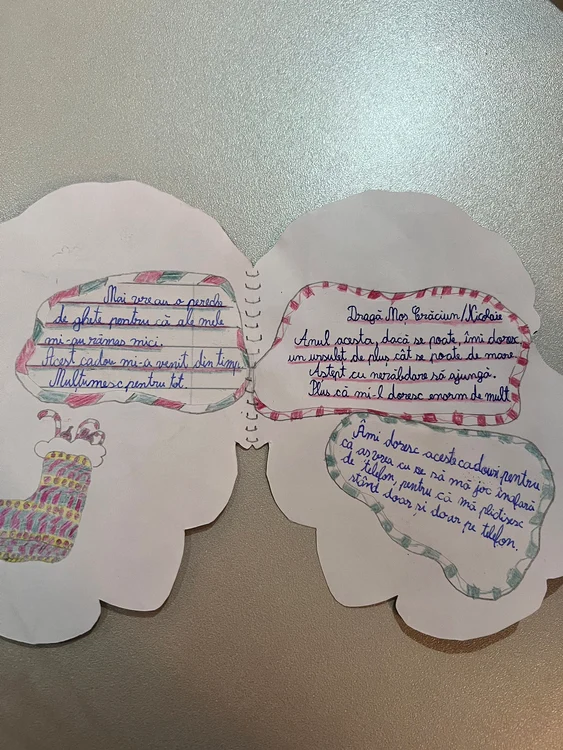 Mai vreau o pereche
de ghete pentru că ale mele
mi-au rămas mici.
Acest cadou mi-a venit din timp.
Multumesc pentru tot.
Dragă Moș Crăciun/Nicolaie
Anul acesta, dacă se poate, îmi doresc
un ursuleț de pluș cât se poate de mare.
Astept cu nerăbdare să ajungă.
Plus că mi-l doresc enorm de mult
Âmi doresc aceste cadouri pentru
că as vrea cu ce să mă joc înafară
de telefon, pentru că mă plictisesc
stînd doar si doar pe telefon.